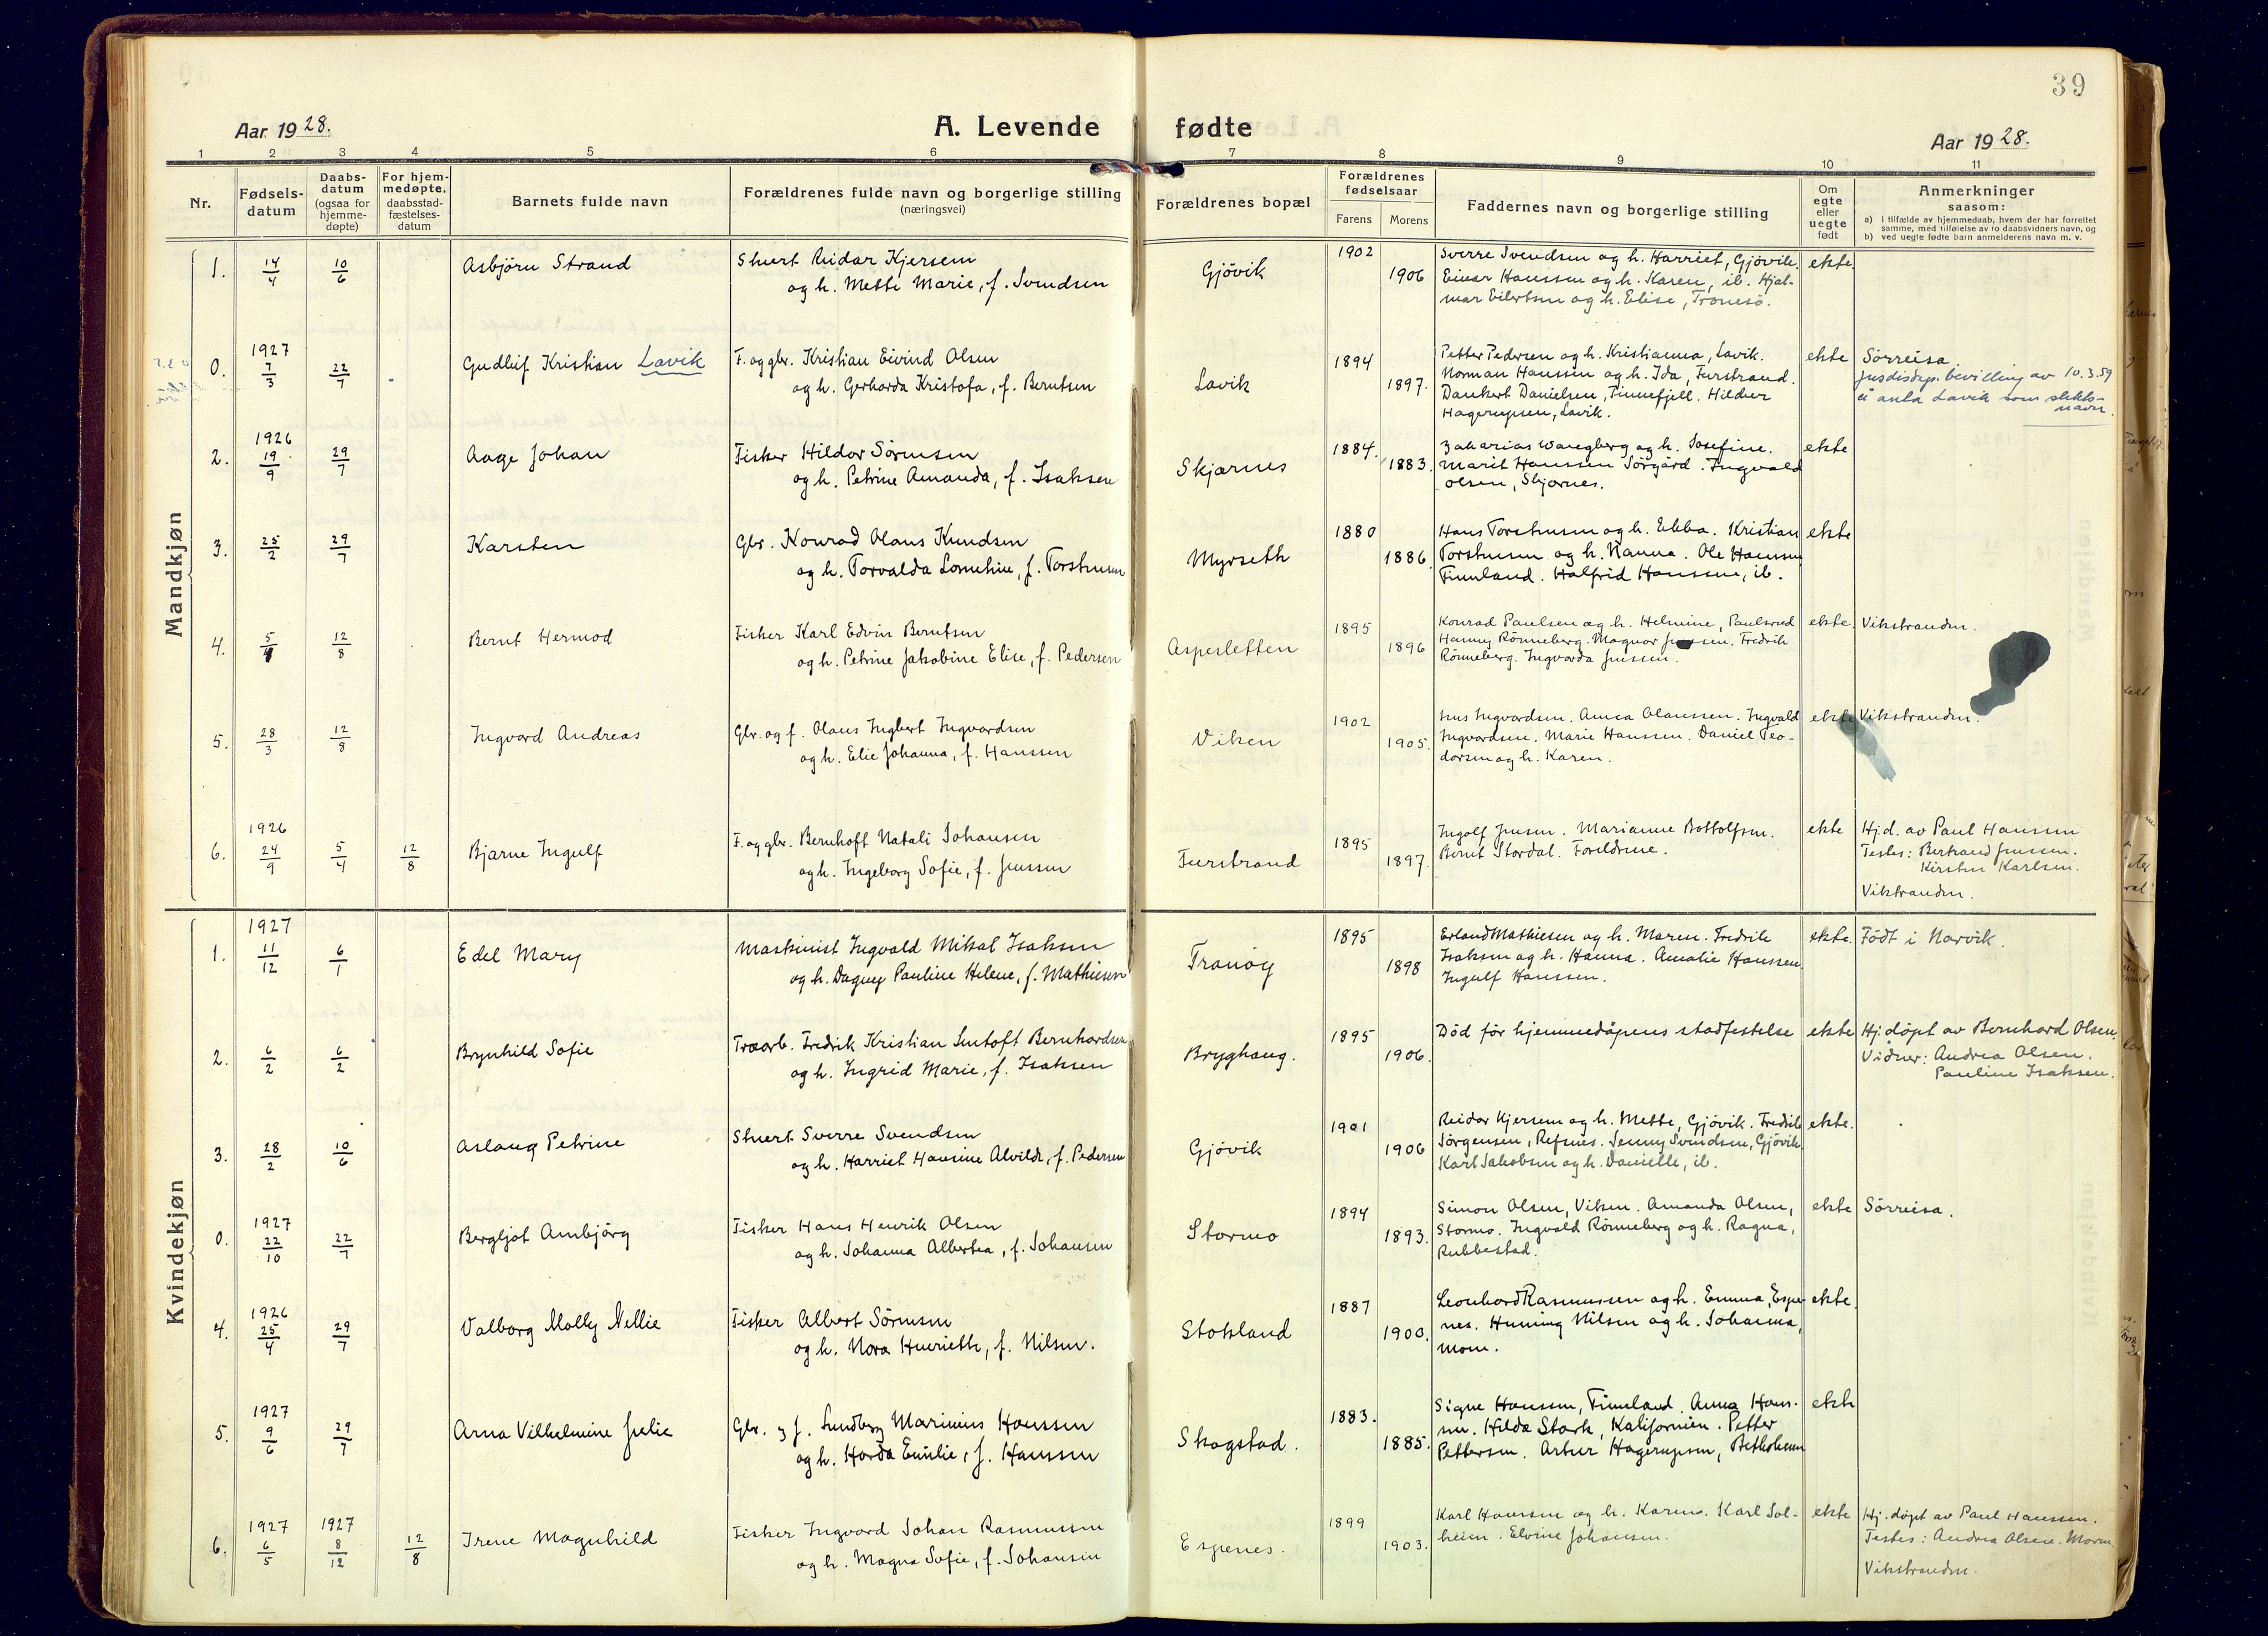 39
Aar 1928.
A. Levende fødte
Aar 1928.
1 2 3 4 5 6 7 8 9 10 11
Nr.
Fødsels-
datum
Daabs-
datum
(ogsaa for
hjemme-
døpte)
For hjem-
medøpte,
daabsstad-
fæstelses-
datum
Barnets fulde navn
Forældrenes fulde navn og borgerlige stilling
(næringsvei)
Forældrenes bopæl
Forældrenes
fødselsaar
Farens Morens
Faddernes navn og borgerlige stilling
Om
egte
eller
uegte
født
Anmerkninger
saasom:
a) i tilfælde av hjemmedaab, hvem der har forrettet
samme, med tilføielse av to daabsvidners navn, og
b) ved uegte fødte barn anmelderens navn m. v.
Mandkjøn
1. 14/4 10/6 Asbjörn Strand
Reidar Kjersem
og h. Mette Marie, f. Svendsen
Gjövik 1902 1906
Sverre Svendsen og h. Harriet, Gjövik.
Einar Hanssen og h. Karen, ib. Hjal-
mar Eilertsen og h. Elise, Tromsö.
ekte.
0. 1927 7/3 22/7 Gudleif Kristian Lavik
F. og gbr. Kristian Eivind Olsen
og h. Gerharda Kristofa, f. Berntsen
Lavik 1894 1897.
Petter Pedersen og h. Kristianna, Lavik.
Norman Hanssen og h. Ida, Furstrand.
Dankert Danielsen, Finnefjell. Hildur
Hagerupsen, Lavik.
ekte
Sörreisa
bevilling av 10.3.59
å anta Lavik som slekts-
navn.
2. 1926 19/9 29/7 Aage Johan
Fisker Hildor Sörensen
og h. Petrine Amanda, f. Isaksen
Skjærnes 1884. 1883.
Zakarias Wangberg og h. Josefine.
Marit Hanssen Sörgård. Ingvald
Olsen, Skjærnes.
ekte
3. 25/2 29/7 Karsten
Gbr. Konrad Olaus Knudsen
og h. Torvalda , f. Torstensen
Myrseth 1880 1886.
Hans Torstensen og h. Ebba. Kristian
Torstensen og h. Nanna. Ole Hanssen
Finnland. Halfrid Hanssen, ib.
ekte
4. 12/8 Bernt Hermod
Fisker Karl Edvin Berntsen
og h. Petrine Jakobine Elise, f. Pedersen
Aspesletten 1895 1896
Konrad Paulsen og h. Helmine, Paulsrud
Hanny Rönneberg. Magnar . Fredrik
Rönneberg. Ingvarda Jenssen.
ekte. Vikstranden.
5. 28/3 12/8 Ingvard Andreas
Gbr. og f. Olaus Ingbert Ingvardsen
og h. Elie Johanna, f. Hanssen
Viken 1902 1905.
Jens Ingvardsen. Anna Olaussen. Ingvald
Ingvardsen. Marie Hanssen. Daniel Teo-
dorsen og h. Karen.
ekte Vikstranden.
6. 1926 24/9 5/4 12/8 Bjarne Ingulf
F. og gbr. Bernhoft Natali Johansen
og h. Ingeborg Sofie, f. Jenssen
Furstrand 1895 1897.
Ingolf Jensen. Marianne Bottolfsen.
Bernt Stordal. Foreldrene.
ekte
Hj.d. av Paul Hanssen
Testes: Bertrand Jenssen.
Kirsten Karlsen.
Vikstranden.
Kvindekjøn
1. 1927 11/12 6/1 Edel Mary
Maskinist Ingvald Mikal Isaksen
og h. Dagny Pauline Helene, f. Mathisen
Tranöy 1895 1898
Erland Mathiesen og h. Maren. Fredrik
Isaksen og h. Hanna. Amalie Hanssen.
Ingulf Hanssen.
ekte. Födt i Narvik.
2. 6/2 6/2 Brynhild Sofie
Træarb. Fredrik Kristian Bernhardsen
og h. Ingrid Marie, f. Isaksen
Bryghaug. 1895 1906.
Död för hjemmedåpens stadfestelse
ekte
Hj.döpt av Bernhard Olsen.
Vidner: Andrea Olsen.
Pauline Isaksen.
3. 28/2 10/6 Aslaug Petrine
Sverre Svendsen
og h. Harriet Hansine Alvilde, f. Pedersen
Gjövik 1901 1906
Reidar Kjersem og h. Mette, Gjövik. Fredrik
Sörgensen, Refsnes. Jenny Svendsen, Gjövik.
Karl Jakobsen og h. Danielle, ib.
ekte.
0. 1927 22/10 22/7 Bergljot Arnbjörg
Fisker Hans Henrik Olsen
og h. Johanna Albertea, f. Johansen
Stormo 1894 1893.
Simon Olsen, Viken. Amanda Olsen,
Stormo. Ingvald Rönneberg og h. Ragna,
Rubbestad.
ekte Sörreisa.
4. 1926 25/4 29/7 Valborg Molly Nellie
Fisker Albert Sörensen
og h. Nora Henriette, f. Nilsen.
Stokland 1887 1900.
Leonhard Rasmussen og h. Emma, Espe-
nes. Henning Nilsen og h. Johanna,
Moen.
ekte.
5. 1927 9/6 29/7 Arna Vilhelmine Julie
Gbr. og f. Lundberg Marinius Hanssen
og h. Harda Emilie, f. Hanssen
Skogstad. 1883. 1885.
Signe Hanssen, Finnland. Anna Hans-
sen. Hilda Stark, Kalifornien. Petter
Pettersen. Artur Hagerupsen, Betlehem
ekte
6. 1927 6/5 1927 8/12 12/8 Irene Magnhild
Fisker Ingvard Johan Rasmussen
og h. Magna Sofie, f. Johansen
Espenes. 1899 1903.
Karl Hanssen og h. Karen. Karl Sol-
heim. Elvine Johansen.
ekte
Hj. döpt av Paul Hanssen.
Testes: Andrea Olsen. Moren
Vikstranden.